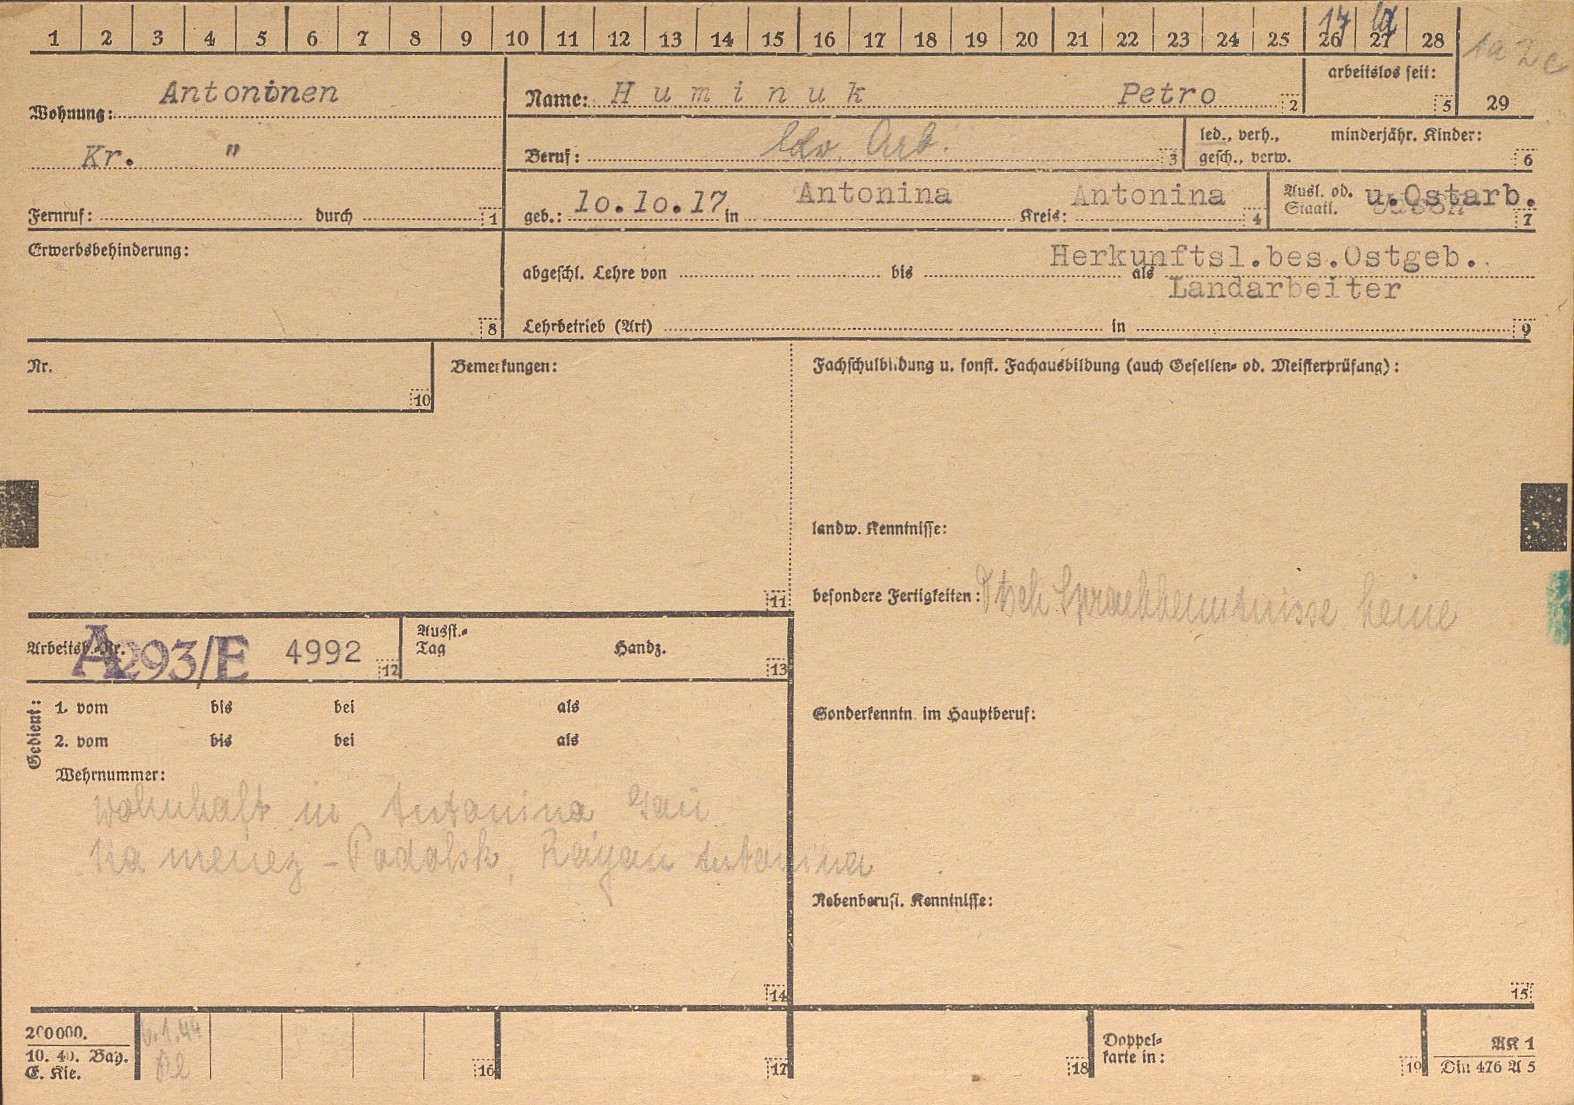 1 2 3 4 5 6 7 8 9 10 11 12 13 14 15 16 17 18 19 20 21 22 23 24 25 26 27 28
17
1a 2c
Wohnung: Antoninen
Kr. "
Fernruf: durch 1
Name: Huminuk Petro 2
arbeitslos seit: 5
29
Beruf: Ldw. Arb. 3
led., verh., gesch., verw.
minderjähr. Kinder: 6
geb.: 10.10.17 in Antonina Kreis: Antonina 4
Ausl. od. Staatl. u.Ostarb. 7
Erwerbsbehinderung: 8
Herkunftsl.bes.Ostgeb.
abgeschl. Lehre von bis als Landarbeiter
Lehrbetrieb (Art) in 9
Nr. 10
Bemerkungen: 11
Fachschulbildung u. sonst. Fachausbildung (auch Gesellen- od. Meisterprüfung):
landw. Kenntnisse:
besondere Fertigkeiten: Dtsch Sprachkenntnisse keine
Arbeitsb.-Nr. A293/E 4992 12
Ausst.-Tag Handz. 13
Gedient:
1. vom bis bei als
2. vom bis bei als
Wehrnummer:
wohnhaft in Antonina Gau
Kamenez-Podolsk, Rayan Antonina
14
Sonderkenntn. im Hauptberuf:
Nebenberufl. Kenntnisse:
15
200000.
10. 40. Bay.
E. Kie.
16
17
18
Doppelkarte in: 19
AK 1
Din 476 A 5